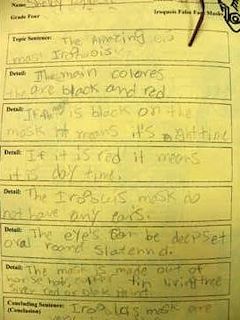 Name
Grade Four Iroquois False Face Masks
Topic Sentence: The Amazing
mask Iroquois
Detail: The main colores
are black and red
Detail: If is black on the
mask it means it's night time
Detail: If it is red it means
it is day time.
Detail: The Iroquois mask do
not have any ears.
Detail: The eye's can be deepset
oval round
Detail: The mask is made out of
horse hair tin living tree
red or black paint
Concluding Sentence: Iroquois mask are
(Conclusion)